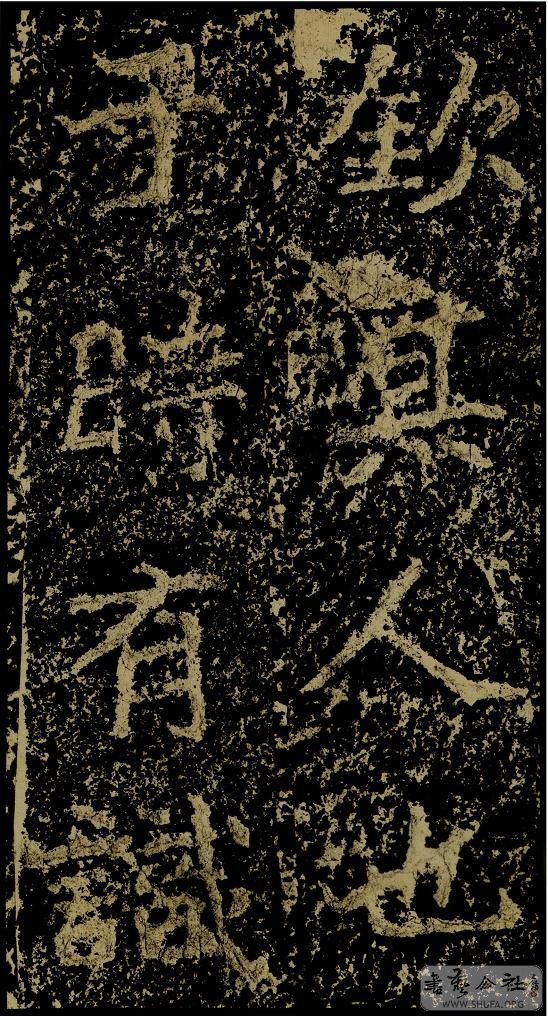 欽真人也
于時有識
書藝公社
WWW.SHUFA.ORG